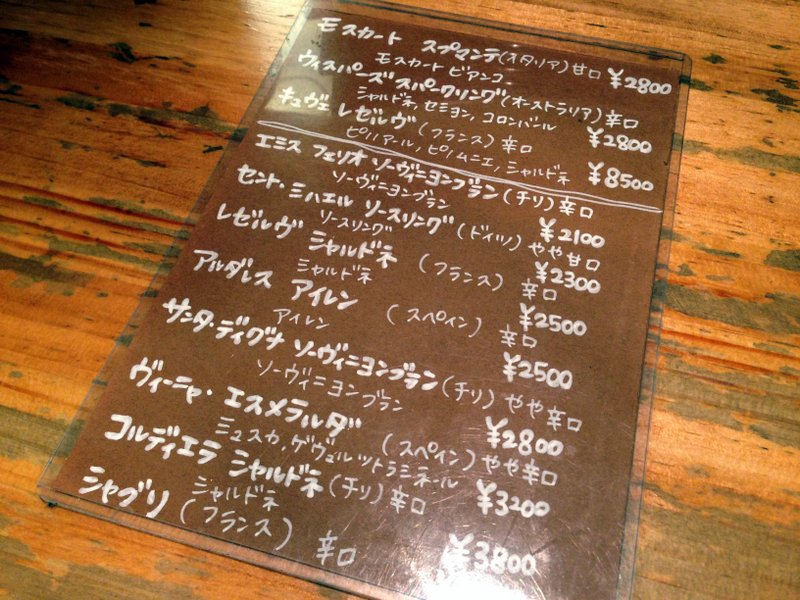 モスカート スプマンテ(イタリア)甘口 ¥2800
モスカート ビアンコ
ウィスパーズ スパークリング(オーストラリア)辛口 ¥2800
シャルドネ、セミヨン、コロンバール
キュヴェ レゼルヴ(フランス)辛口 ¥8500
ピノノアール、ピノムニエ、シャルドネ
エミス フェリオ ソーヴィニヨンブラン(チリ)辛口 ¥2100
ソーヴィニヨンブラン
セント・ミハエル リースリング(ドイツ)やや甘口 ¥2300
リースリング
レゼルヴ シャルドネ (フランス) 辛口 ¥2500
シャルドネ
アルダレス アイレン (スペイン) 辛口 ¥2500
アイレン
サンタ・ディグナ ソーヴィニヨンブラン(チリ)やや辛口 ¥2800
ソーヴィニヨンブラン
ヴィーニャ・エスメラルダ (スペイン)やや辛口 ¥3200
ミュスカ、ゲヴュルットラミネール
コルディエラ シャルドネ(チリ)辛口 ¥3800
シャルドネ
シャブリ (フランス) 辛口